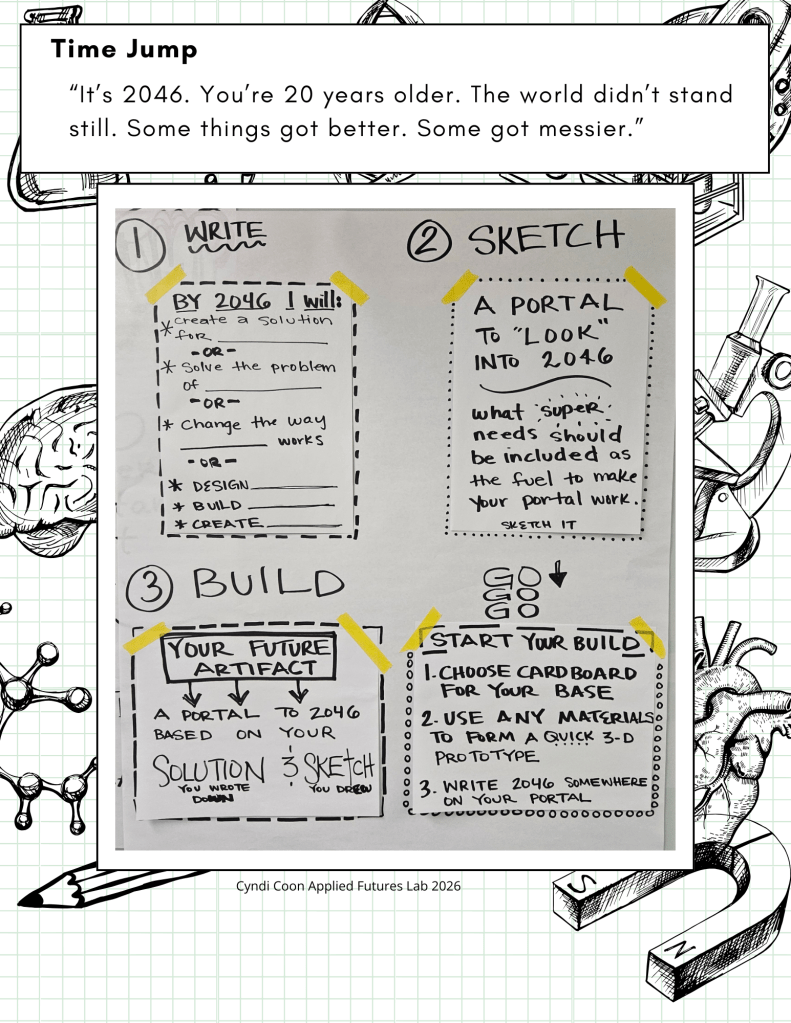 Time Jump
“It’s 2046. You’re 20 years older. The world didn’t stand
still. Some things got better. Some got messier.”
1 WRITE
BY 2046 I will:
* create a solution
for ___________
-OR-
* Solve the problem
of ___________
-OR-
* Change the way
___________ works
-OR-
* DESIGN___________
* BUILD ___________
* CREATE___________
2 SKETCH
A PORTAL
TO "LOOK"
INTO 2046
what super
needs should
be included as
the fuel to make
your portal work.
SKETCH IT
3 BUILD
YOUR FUTURE
ARTIFACT
A PORTAL TO 2046
BASED ON YOUR
SOLUTION & SKETCH
YOU WROTE DOWN
YOU DREW
GO
GO
GO
START YOUR BUILD
1. CHOOSE CARDBOARD
FOR YOUR BASE
2. USE ANY MATERIALS
TO FORM A QUICK 3-D
PROTOTYPE
3. WRITE 2046 SOMEWHERE
ON YOUR PORTAL
Cyndi Coon Applied Futures Lab 2026
S
N